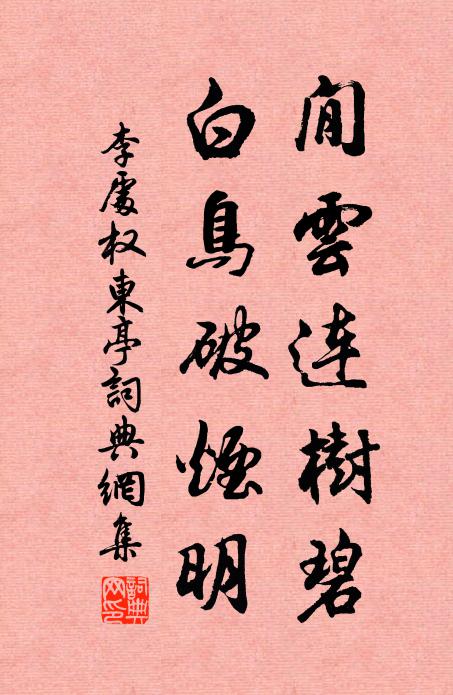 閒雲連樹碧
白鳥破煙明
李處权東亭詞典網集
詞典網印